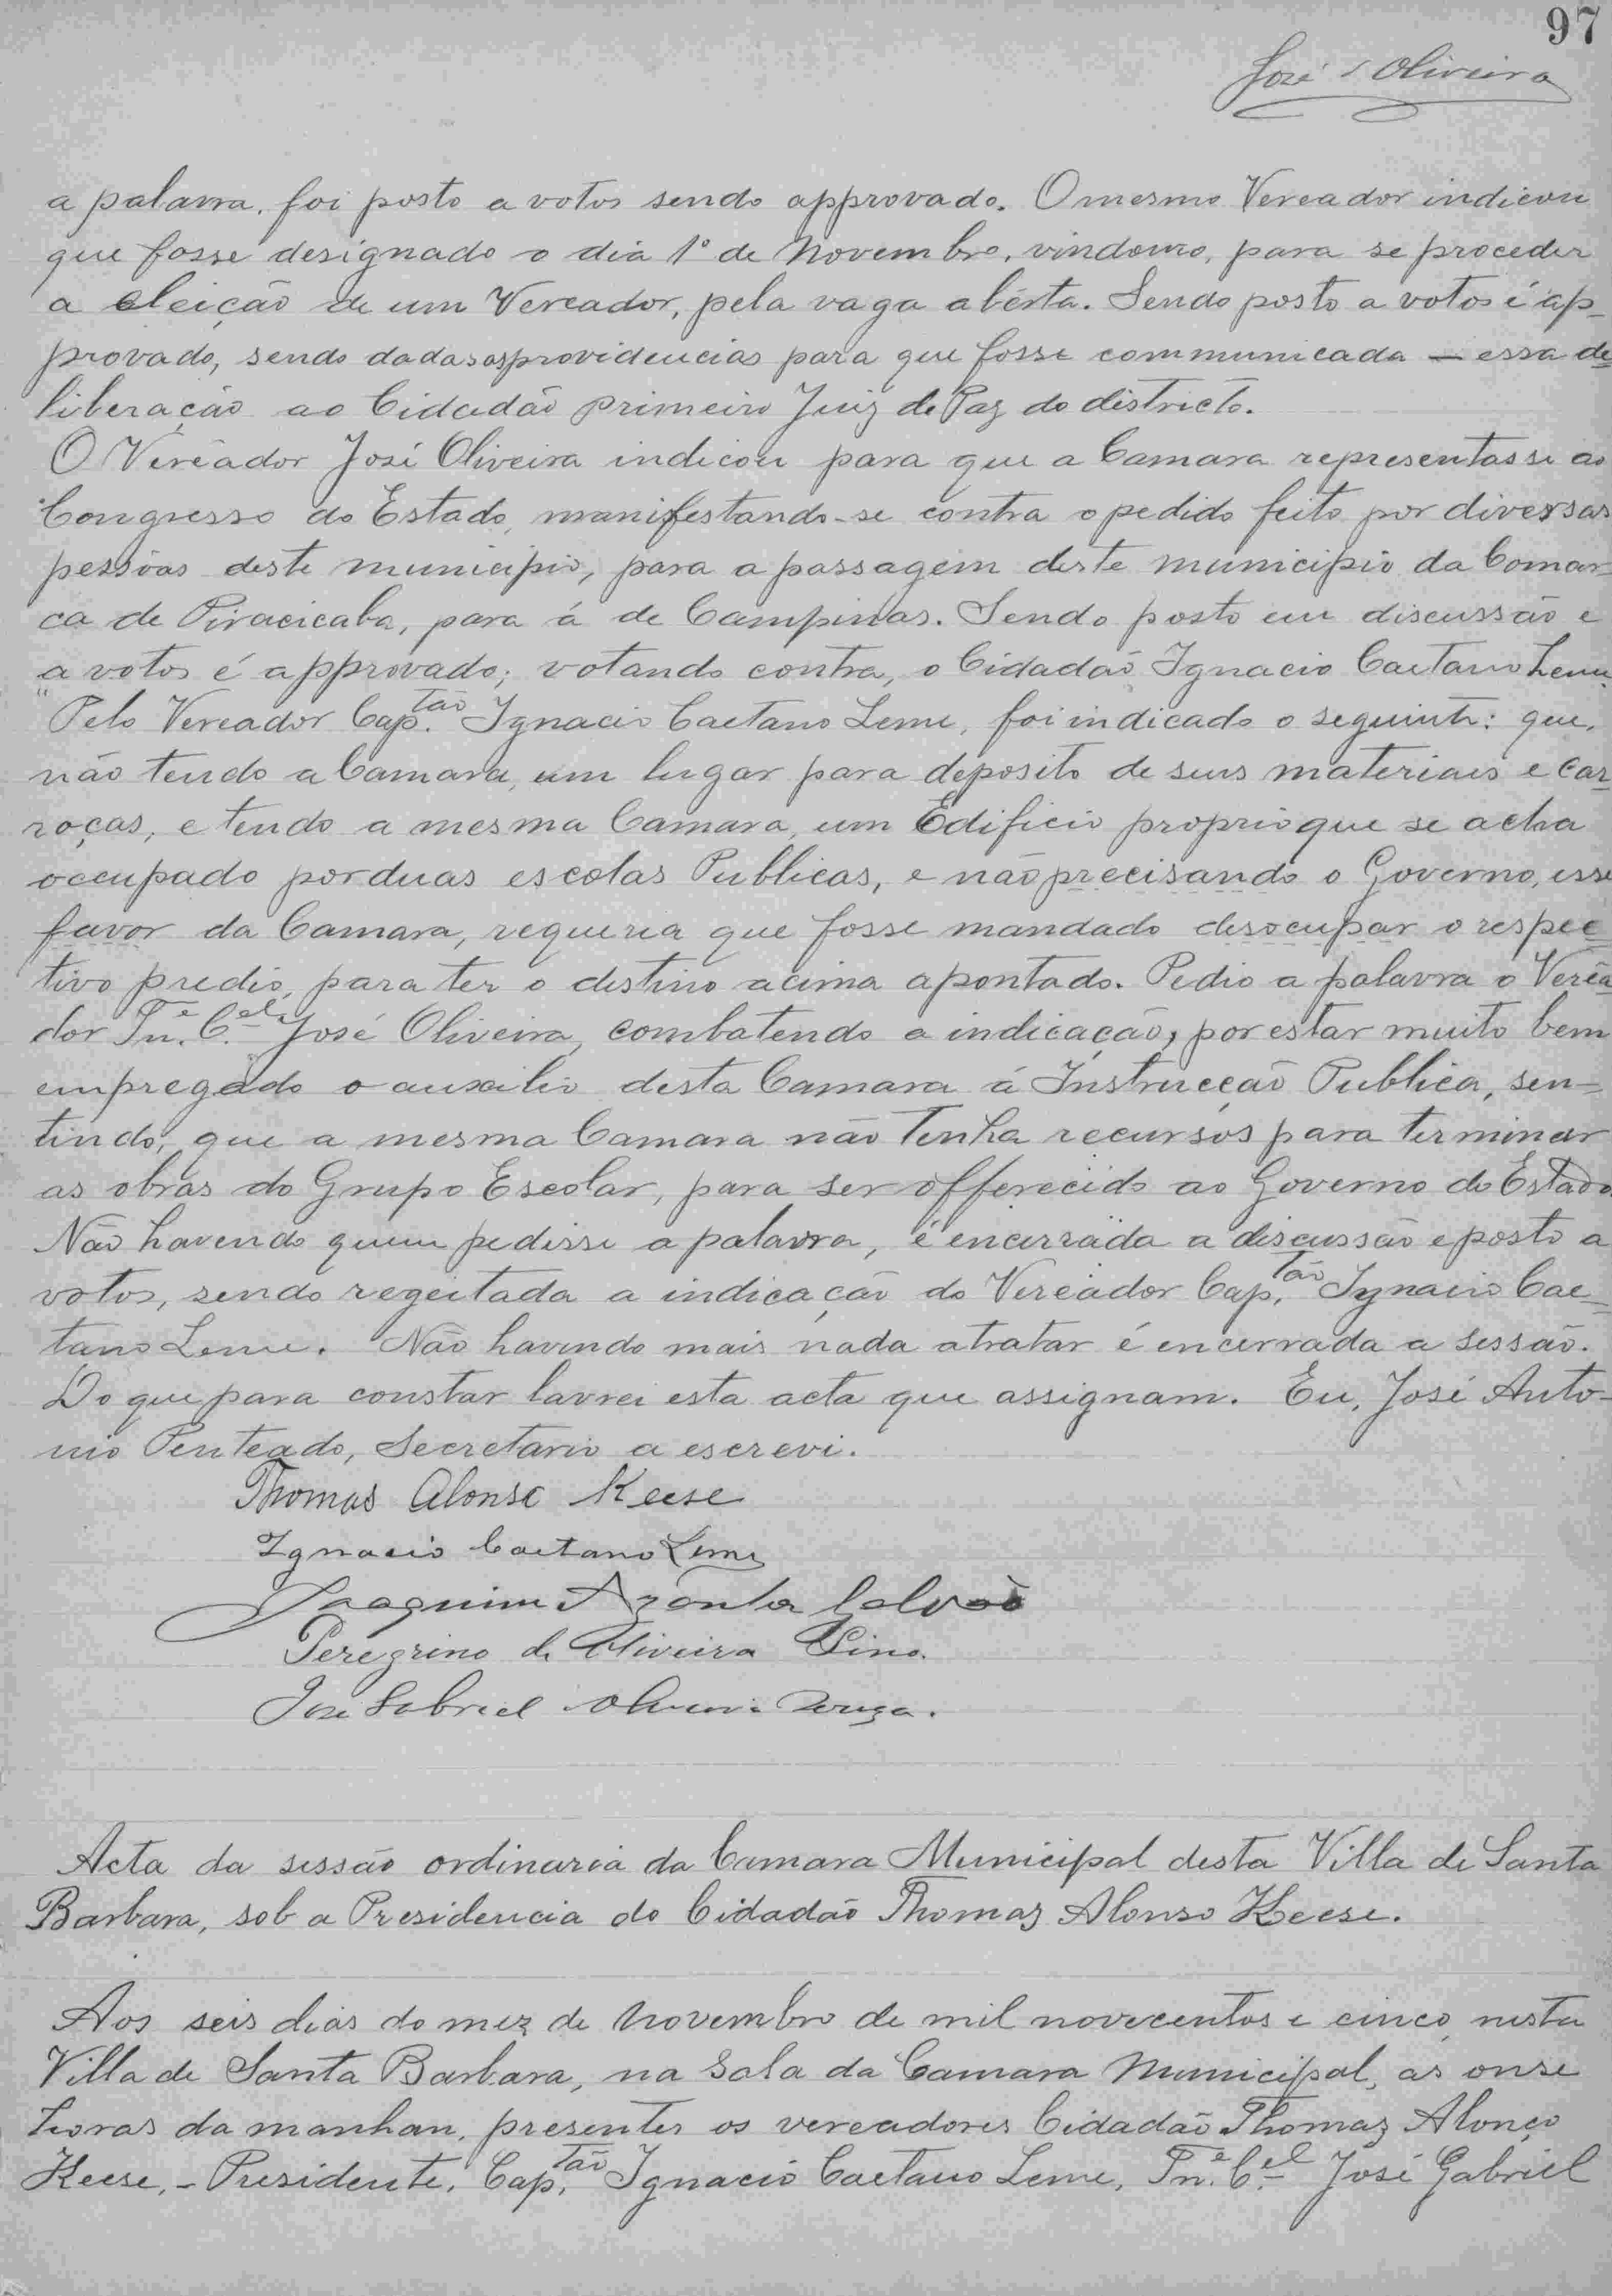 97
José Oliveira
a palavra, foi posto a votos sendo approvado. O mesmo Vereador indicou
que fosse designado o dia 1º de Novembro, vindouro, para se proceder
a eleição de um Vereador, pela vaga abérta. Sendo posto a votos é ap-
provado, sendo dadas as providencias para que fosse communicada — essa de
liberação ao Cidadão primeiro Juiz de Paz do districto.
O Vereador José Oliveira indicou para que a Camara representasse ao
Congresso do Estado, manifestando-se contra o pedido feito por diversas
pessôas deste municipio, para a passagem deste municipio da Comar-
ca de Piracicaba, para á de Campinas. Sendo posto em discussão e
a votos é approvado; votando contra, o Cidadão Ignacio Caetano Leme.
"Pelo Vereador Cap.tão Ignacio Caetano Leme, foi indicado o seguinte: que,
não tendo a Camara, um lugar para deposito de seus materiais e car
roças, e tendo a mesma Camara, um Edificio proprio que se acha
occupado por duas escolas Publicas, e não precisando o Governo, esse
favor da Camara, requeria que fosse mandado desocupar o respec
tivo predio, para ter o destino acima apontado. Pedio a palavra o Verea
dor Tn.e C.el José Oliveira, combatendo a indicação, por estar muito bem
empregado o auxilio desta Camara á Instrucção Publica, sen-
tindo, que a mesma Camara não tenha recursos para terminar
as obras do Grupo Escolar, para ser offerecido ao Governo do Estado.
Não havendo quem pedisse a palavra, é encerrada a discussão e posto a
votos, sendo regeitada a indicação do Vereador Cap.tão Ignacio Cae-
tano Leme. Não havendo mais nada a tratar é encerrada a sessão.
Do que para constar lavrei esta acta que assignam. Eu, José Anto-
nio Penteado, Secretario a escrevi.
Thomas Alonso Keese
Ignacio Caetano Leme
Joaquim Azanha Galvão
Peregrino de Oliveira Lino.
José Gabriel Oliveira Souza.
Acta da sessão ordinaria da Camara Municipal desta Villa de Santa
Barbara, sob a Presidencia do Cidadão Thomaz Alonso Keese.
Aos seis dias do mez de Novembro de mil novecentos e cinco, nesta
Villa de Santa Barbara, na Sala da Camara Municipal, as onse
horas da manhan, presentes os vereadores Cidadão Thomaz Alonço
Keese, - Presidente, Cap.tão Ignacio Caetano Leme, Tn.e C.el José Gabriel